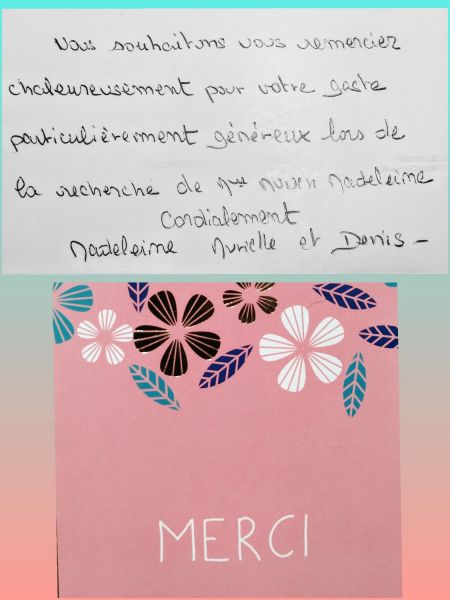 Nous souhaitons vous remercier
chaleureusement pour votre geste
particulièrement généreux lors de
la recherche de Mme Madeleine
Cordialement
Madeleine Murielle et Denis -
MERCI